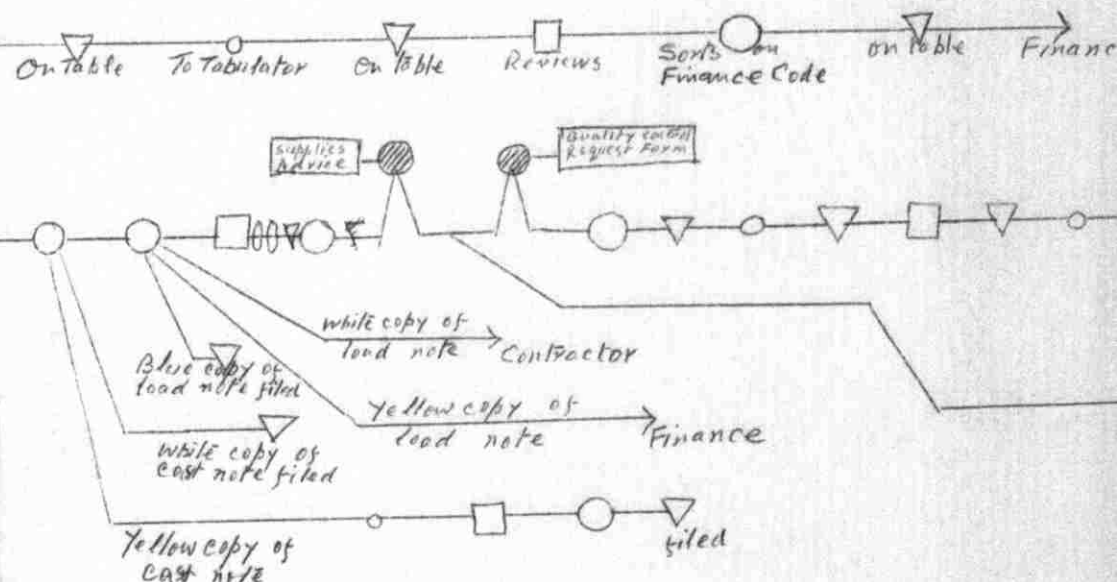 On Table
To Tabulator
On Table
Reviews
Sorts on
Finance Code
on Table
Financ
Supplies
Advice
Quality control
Request Form
white copy of
load note
Contractor
Blue copy of
load note filed
Yellow copy of
load note
Finance
White copy of
cost note filed
filed
Yellow copy of
cost note